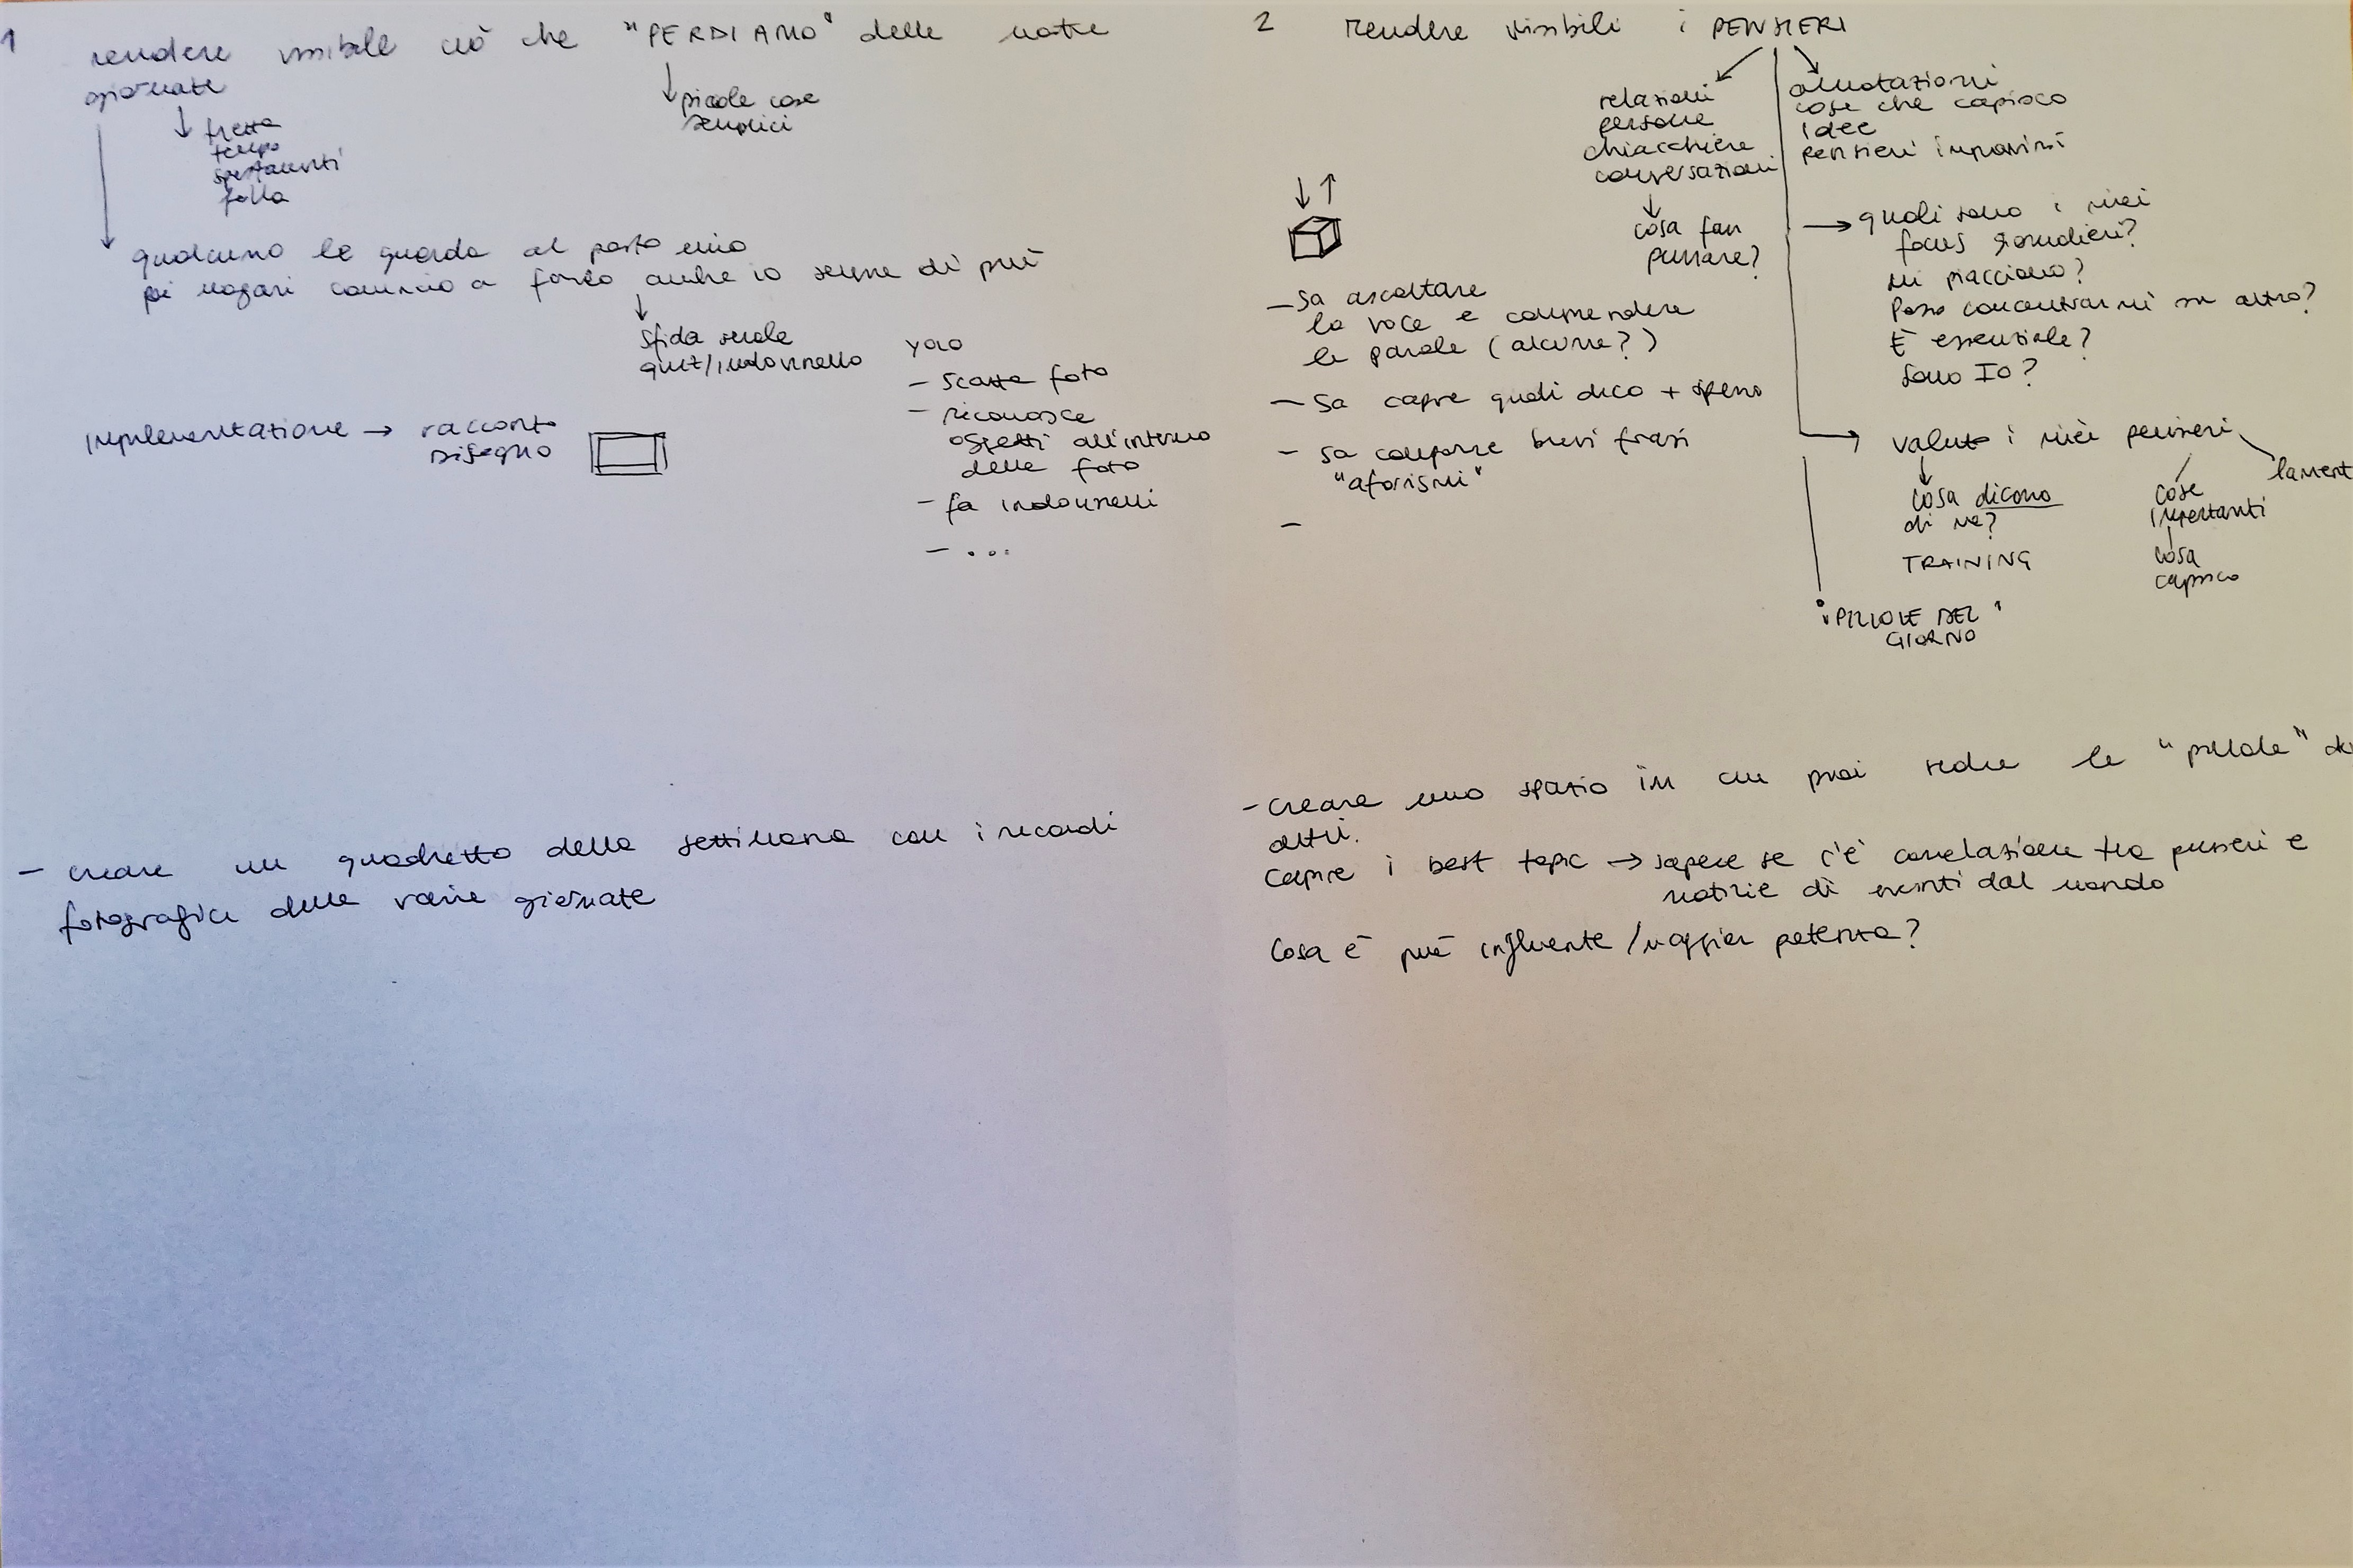 1
rendere visibile ciò che "PERDIAMO" delle nostre
giornate
piccole cose
semplici
fretta
tempo
spostamenti
folla
qualcuno le guarda al posto mio
poi magari comincio a farlo anche io sempre di più
sfida serale
quiz/indovinello
YOLO
- scatta foto
- riconosce
oggetti all'interno
delle foto
- fa indovinelli
- ...
implementazione → racconto
disegno
- creare un quadretto della settimana con i ricordi
fotografici delle varie giornate
2 rendere visibili i PENSIERI
relazioni
persone
chiacchiere
conversazioni
cosa fan
pensare?
annotazioni
cose che capisco
idee
pensieri improvvisi
→ quali sono i miei
focus giornalieri?
mi piacciono?
Posso concentrarmi su altro?
È essenziale?
Sono Io?
- Sa ascoltare
la voce e comprendere
le parole (alcune?)
- Sa capire quali dico + spesso
- sa comporre brevi frasi
"aforismi"
-
valuto i miei pensieri
cosa dicono
di me?
TRAINING
cose
importanti
cosa
capisco
lament
"PILLOLE DEL"
GIORNO
- creare uno spazio in cui puoi vedere le "pillole" di
altri.
Capire i best topic → sapere se c'è correlazione tra pensieri e
notizie di eventi dal mondo
Cosa è più influente/maggior potenza?